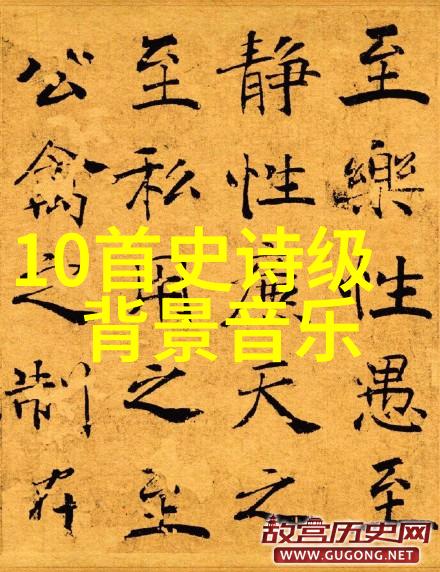 至樂性愚至
静性天之
至私之至
公禽之制在
10首史诗级
背景音乐
故宫历史网
WWW.GUGONG.NET